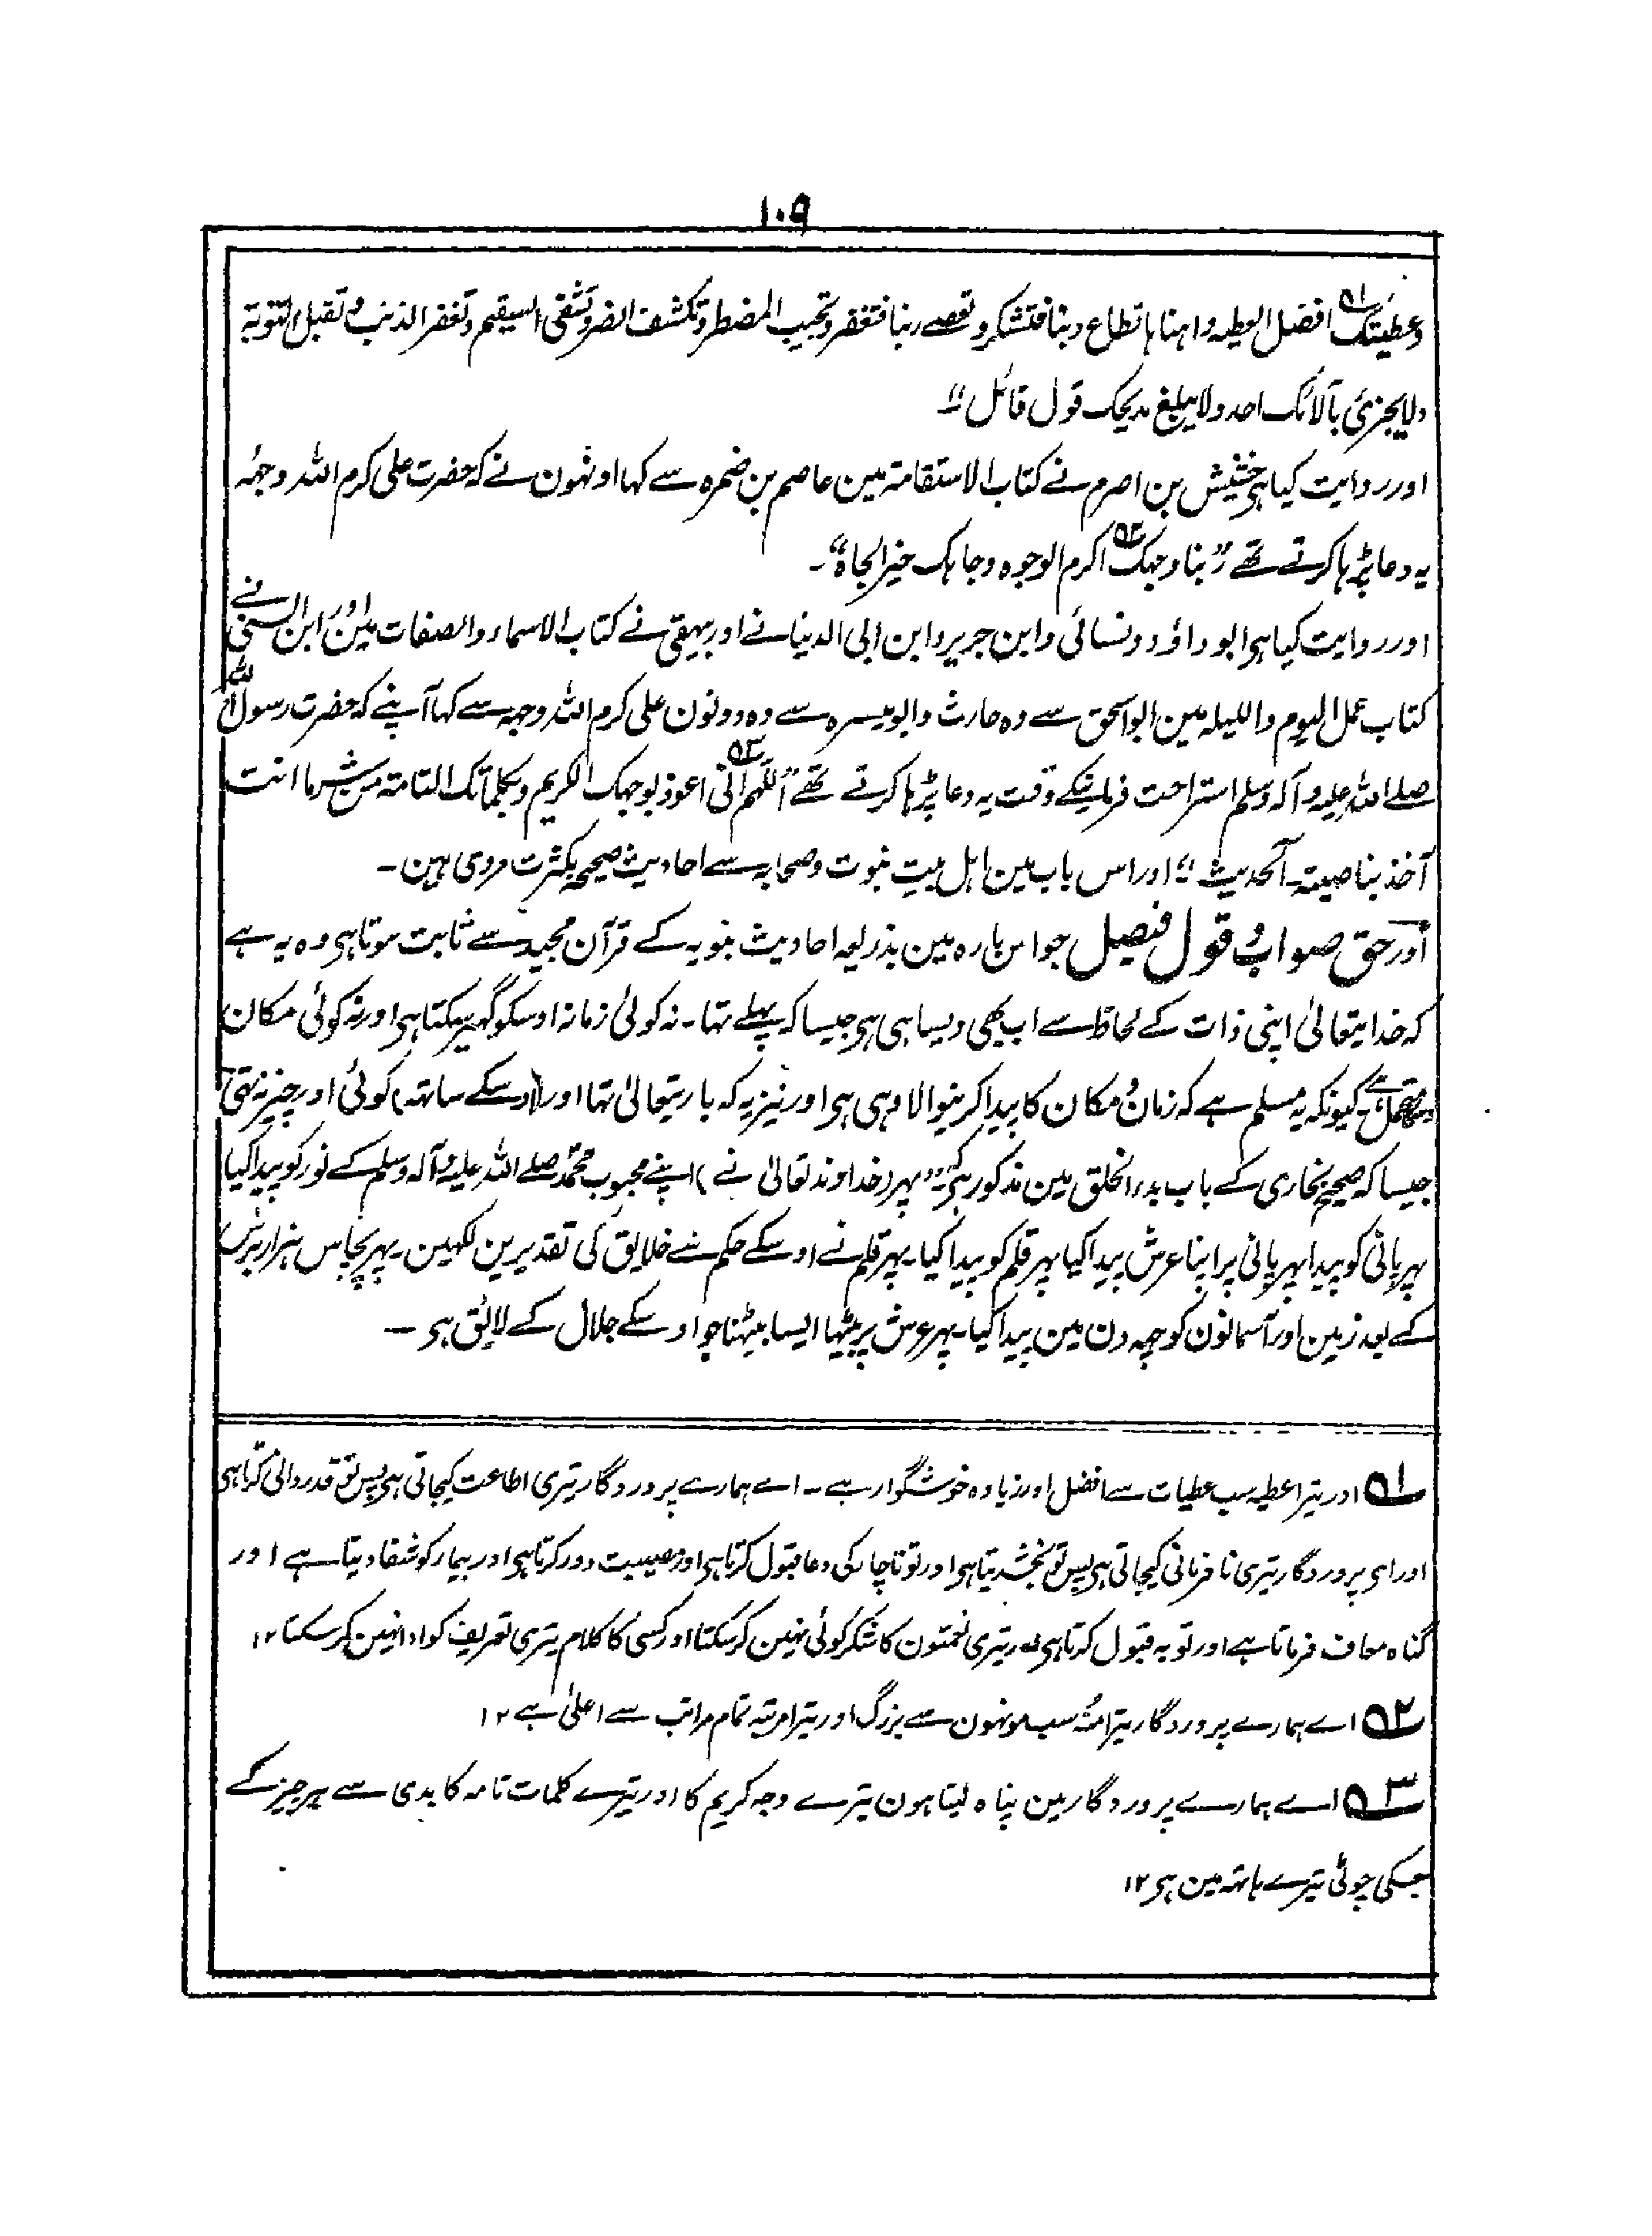 ١٠٩
وعطیتک ٥١ افضل العطیه واہناہا تطاع ربنا فتشکر و تعصے ربنا فتغفر وتجیب المضطر وتکشف الضر وتشفی السقیم وتغفر الذنب و تقبل التوبة
ولا یجزئ بآلائک احد ولا یبلغ مدیحک قول قائل"۔
اور روایت کیا ہی خشیش بن اصرم نے کتاب الاستقامة مین عاصم بن ضمرہ سے کہا اونہون نے کہ حضرت علی کرم اللہ وجہہ
یہ دعا پڑہا کرتے تھے "ربنا وجہک ٥٢ اکرم الوجوہ وجاہک خیر الجاہ"۔
اور روایت کیا ہی ابوداؤد ونسائی وابن جریر وابن ابی الدنیا نے اور بیہقی نے کتاب الاسماء والصفات مین اور ابن السنی نے
کتاب عمل الیوم واللیلہ مین ابو اسحق سے وہ حارث وابو میسرہ سے وہ دونون علی کرم اللہ وجہہ سے کہا آپنے کہ حضرت رسول اللہ
صلے اللہ علیہ وآلہ وسلم استراحت فرمانیکے وقت یہ دعا پڑہا کرتے تھے "اللّٰہم ٥٣ انی اعوذ بوجہک الکریم وبکلماتک التامة من شر ما انت
آخذ بناصیتہ۔ الحدیث" اور اس باب مین اہل بیت نبوت وصحابہ سے احادیث صحیحہ بکثرت مروی ہین۔
اور حق صواب و قول فیصل جو اس بارہ مین بذریعہ احادیث نبویہ کے قرآن مجید سے ثابت ہوتا ہی وہ یہ ہے
کہ خدایتعالیٰ اپنی ذات کے لحاظ سے اب بھی ویسا ہی ہی جیسا کہ پہلے تہا۔ نہ کوئی زمانہ اوسکو گھیر سکتا ہی اور نہ کوئی مکان
کیونکہ یہ مسلم ہے کہ زمان و مکان کا پیدا کرنیوالا وہی ہی اور نیز یہ کہ باریتعالیٰ تہا اور (اوسکے ساتہہ) کوئی اور چیز نہ تہی
جیسا کہ صحیح بخاری کے باب بدء الخلق مین مذکور ہی کہ "پہر (خداوند تعالیٰ نے) اپنے محبوب محمد صلے اللہ علیہ وآلہ وسلم کے نور کو پیدا کیا
پہر پانی کو پیدا پہر پانی پر اپنا عرش پیدا کیا پہر قلم کو پیدا کیا۔ پہر قلم نے اوسکے حکم سے خلایق کی تقدیرین لکہین۔ پہر پچاس ہزار برس
کے بعد زمین اور آسمانون کو چہہ دن مین پیدا کیا۔ پہر عرش پر بیٹہا ایسا بیٹہنا جو اوسکے جلال کے لائق ہی۔
٥١ اور تیرا عطیہ سب عطیات سے افضل اور زیادہ خوشگوار ہے۔ اے ہمارے پروردگار تیری اطاعت کیجاتی ہی پس تو قدردانی کرتا ہی
اور ای پروردگار تیری نا فرمانی کیجاتی ہی پس تو بخشدیتا ہی اور تو ناچار کی دعا قبول کرتا ہی اور مصیبت دور کرتا ہی اور بیمار کو شفا دیتا ہے اور
گناہ معاف فرماتا ہے اور توبہ قبول کرتا ہی۔ تیری نعمتون کا شکر کوئی نہین کر سکتا اور کسی کا کلام تیری تعریف کو ادا نہین کر سکتا ١٢
٥٢ اے ہمارے پروردگار تیرا منہ سب مونہون سے بزرگ اور تیرا مرتبہ تمام مراتب سے اعلیٰ ہے ١٢
٥٣ اے ہمارے پروردگار مین پناہ لیتا ہون تیرے وجہ کریم کا اور تیرے کلمات تامہ کا بدی سے ہر چیز کے
جسکی چوٹی تیرے ہاتہہ مین ہی ١٢